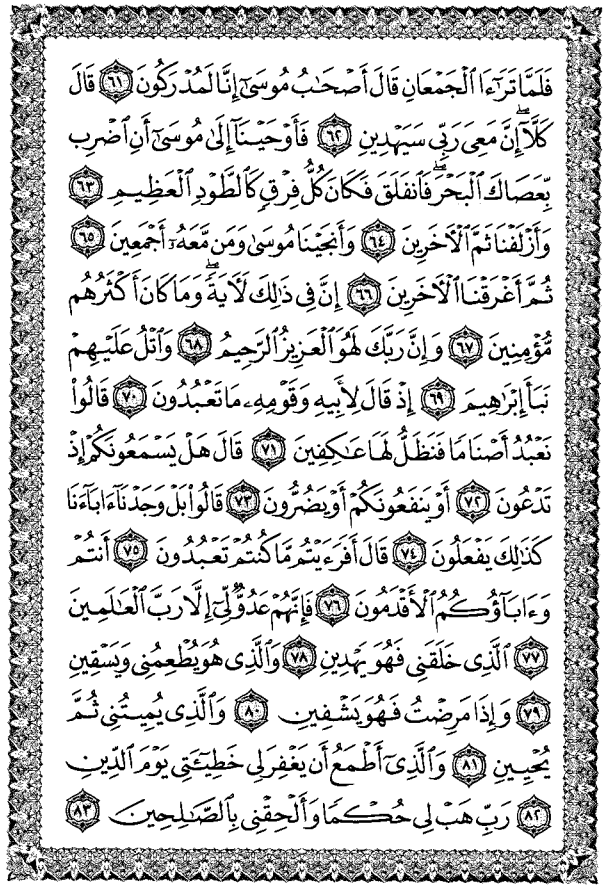 فَلَمَّا تَرَٰٓءَا ٱلْجَمْعَانِ قَالَ أَصْحَٰبُ مُوسَىٰٓ إِنَّا لَمُدْرَكُونَ ٦١ قَالَ
كَلَّآۖ إِنَّ مَعِىَ رَبِّى سَيَهْدِينِ ٦٢ فَأَوْحَيْنَآ إِلَىٰ مُوسَىٰٓ أَنِ ٱضْرِب
بِّعَصَاكَ ٱلْبَحْرَۖ فَٱنفَلَقَ فَكَانَ كُلُّ فِرْقٍ كَٱلطَّوْدِ ٱلْعَظِيمِ ٦٣
وَأَزْلَفْنَا ثَمَّ ٱلْءَاخَرِينَ ٦٤ وَأَنجَيْنَا مُوسَىٰ وَمَن مَّعَهُۥٓ أَجْمَعِينَ ٦٥
ثُمَّ أَغْرَقْنَا ٱلْءَاخَرِينَ ٦٦ إِنَّ فِى ذَٰلِكَ لَءَايَةًۖ وَمَا كَانَ أَكْثَرُهُم
مُّؤْمِنِينَ ٦٧ وَإِنَّ رَبَّكَ لَهُوَ ٱلْعَزِيزُ ٱلرَّحِيمُ ٦٨ وَٱتْلُ عَلَيْهِمْ
نَبَأَ إِبْرَٰهِيمَ ٦٩ إِذْ قَالَ لِأَبِيهِ وَقَوْمِهِۦ مَا تَعْبُدُونَ ٧٠ قَالُوا۟
نَعْبُدُ أَصْنَامًا فَنَظَلُّ لَهَا عَٰكِفِينَ ٧١ قَالَ هَلْ يَسْمَعُونَكُمْ إِذْ
تَدْعُونَ ٧٢ أَوْ يَنفَعُونَكُمْ أَوْ يَضُرُّونَ ٧٣ قَالُوا۟ بَلْ وَجَدْنَآ ءَابَآءَنَا
كَذَٰلِكَ يَفْعَلُونَ ٧٤ قَالَ أَفَرَءَيْتُم مَّا كُنتُمْ تَعْبُدُونَ ٧٥ أَنتُمْ
وَءَابَآؤُكُمُ ٱلْأَقْدَمُونَ ٧٦ فَإِنَّهُمْ عَدُوٌّ لِّىٓ إِلَّا رَبَّ ٱلْعَٰلَمِينَ
٧٧ ٱلَّذِى خَلَقَنِى فَهُوَ يَهْدِينِ ٧٨ وَٱلَّذِى هُوَ يُطْعِمُنِى وَيَسْقِينِ
٧٩ وَإِذَا مَرِضْتُ فَهُوَ يَشْفِينِ ٨٠ وَٱلَّذِى يُمِيتُنِى ثُمَّ
يُحْيِينِ ٨١ وَٱلَّذِىٓ أَطْمَعُ أَن يَغْفِرَ لِى خَطِيٓـَٔتِى يَوْمَ ٱلدِّينِ
٨٢ رَبِّ هَبْ لِى حُكْمًا وَأَلْحِقْنِى بِٱلصَّٰلِحِينَ ٨٣